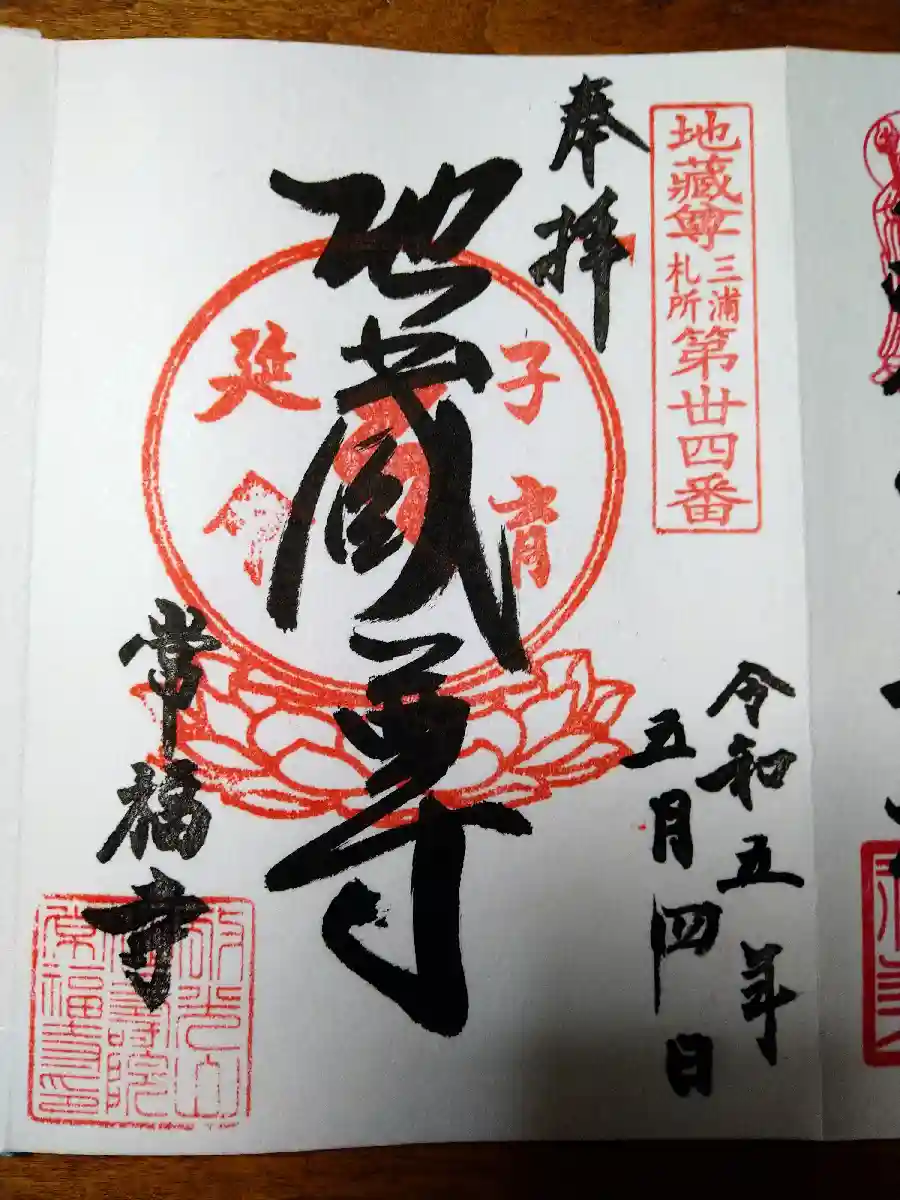 地藏尊三浦札所第丗四番
奉拝
令和五年
五月四日
子育
地蔵尊
延命
常福寺
常福寺印